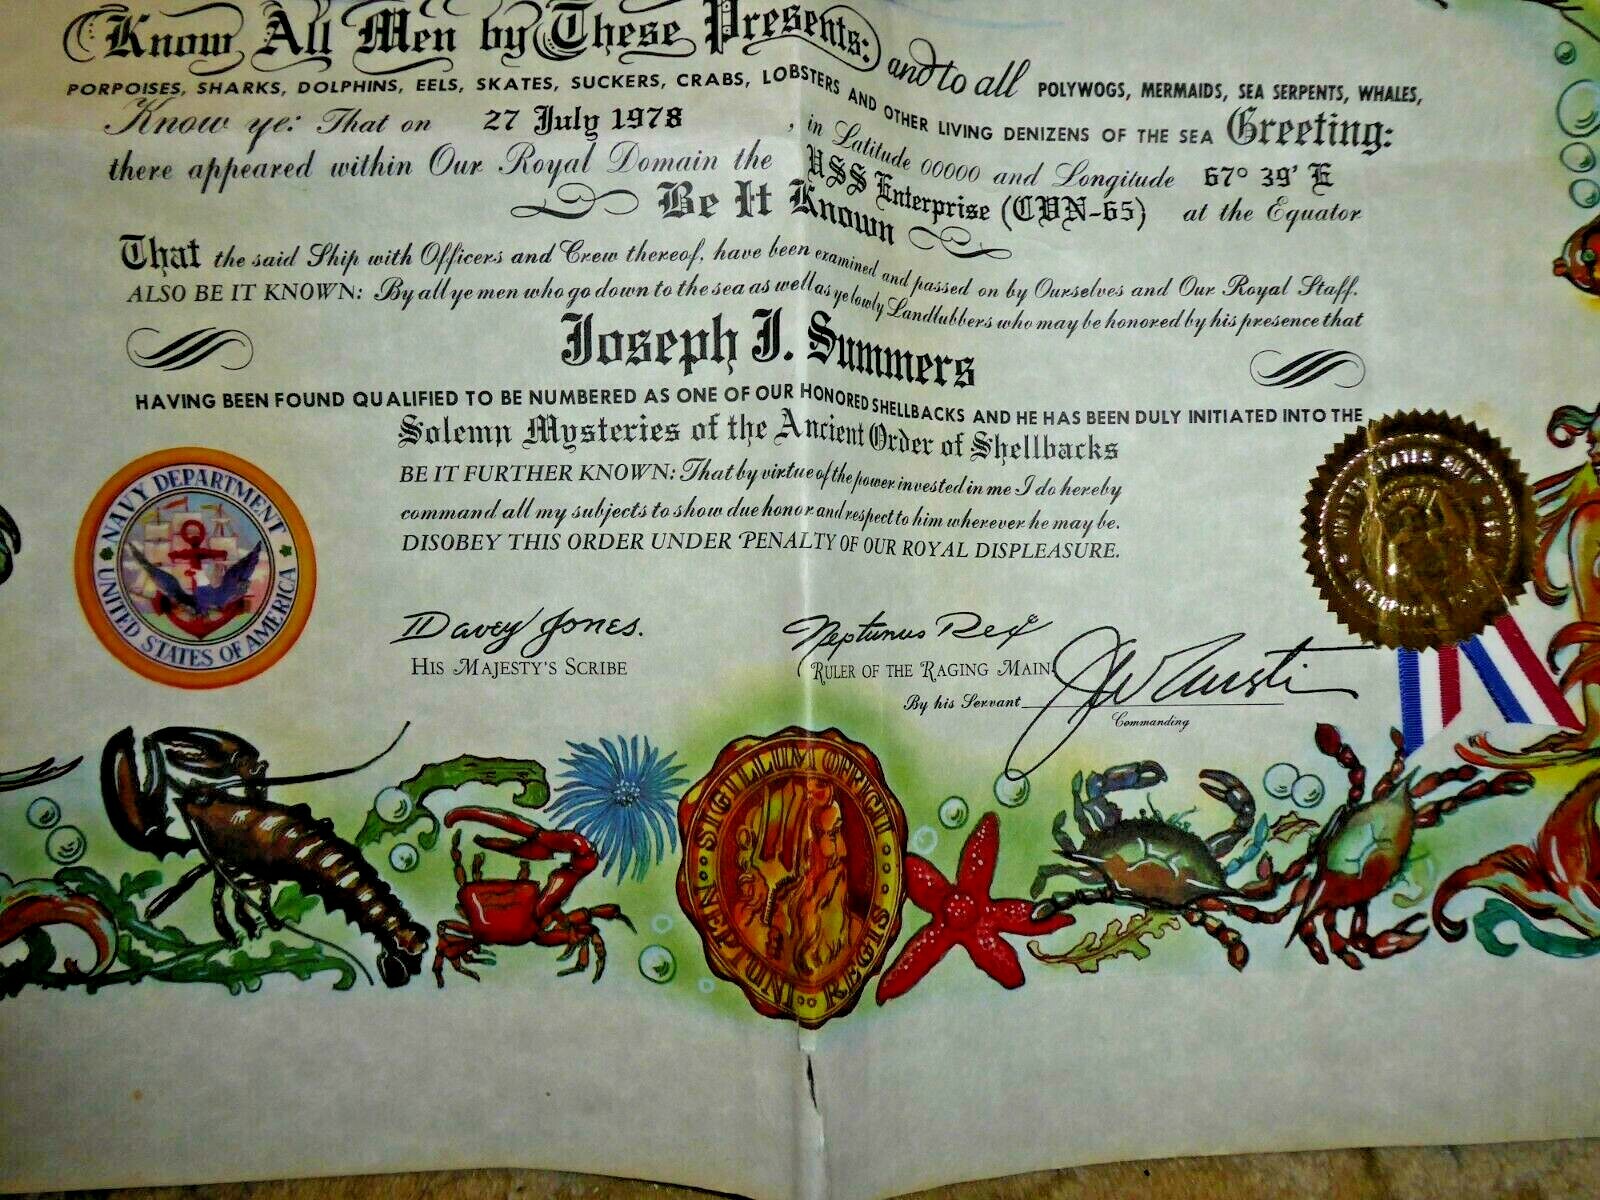 Know All Men by These Presents: and to all POLYWOGS, MERMAIDS, SEA SERPENTS, WHALES,
PORPOISES, SHARKS, DOLPHINS, EELS, SKATES, SUCKERS, CRABS, LOBSTERS AND OTHER LIVING DENIZENS OF THE SEA Greeting:
Know ye: That on 27 July 1978, in Latitude 00000 and Longitude 67° 39' E
there appeared within Our Royal Domain the USS Enterprise (CVN-65) at the Equator
Be It Known
That the said Ship with Officers and Crew thereof, have been examined and passed on by Ourselves and Our Royal Staff.
ALSO BE IT KNOWN: By all ye men who go down to the sea as well as ye lowly Landlubbers who may be honored by his presence that
Joseph J. Summers
HAVING BEEN FOUND QUALIFIED TO BE NUMBERED AS ONE OF OUR HONORED SHELLBACKS AND HE HAS BEEN DULY INITIATED INTO THE
Solemn Mysteries of the Ancient Order of Shellbacks
BE IT FURTHER KNOWN: That by virtue of the power invested in me I do hereby
command all my subjects to show due honor and respect to him wherever he may be.
DISOBEY THIS ORDER UNDER PENALTY OF OUR ROYAL DISPLEASURE.
NAVY DEPARTMENT
UNITED STATES OF AMERICA
Davey Jones.
HIS MAJESTY'S SCRIBE
Neptunus Rex
RULER OF THE RAGING MAIN
By his Servant J W Austin
Commanding
UNITED STATES SHIP
ENTERPRISE
SIGILLUM
NEPTUNI REGIS